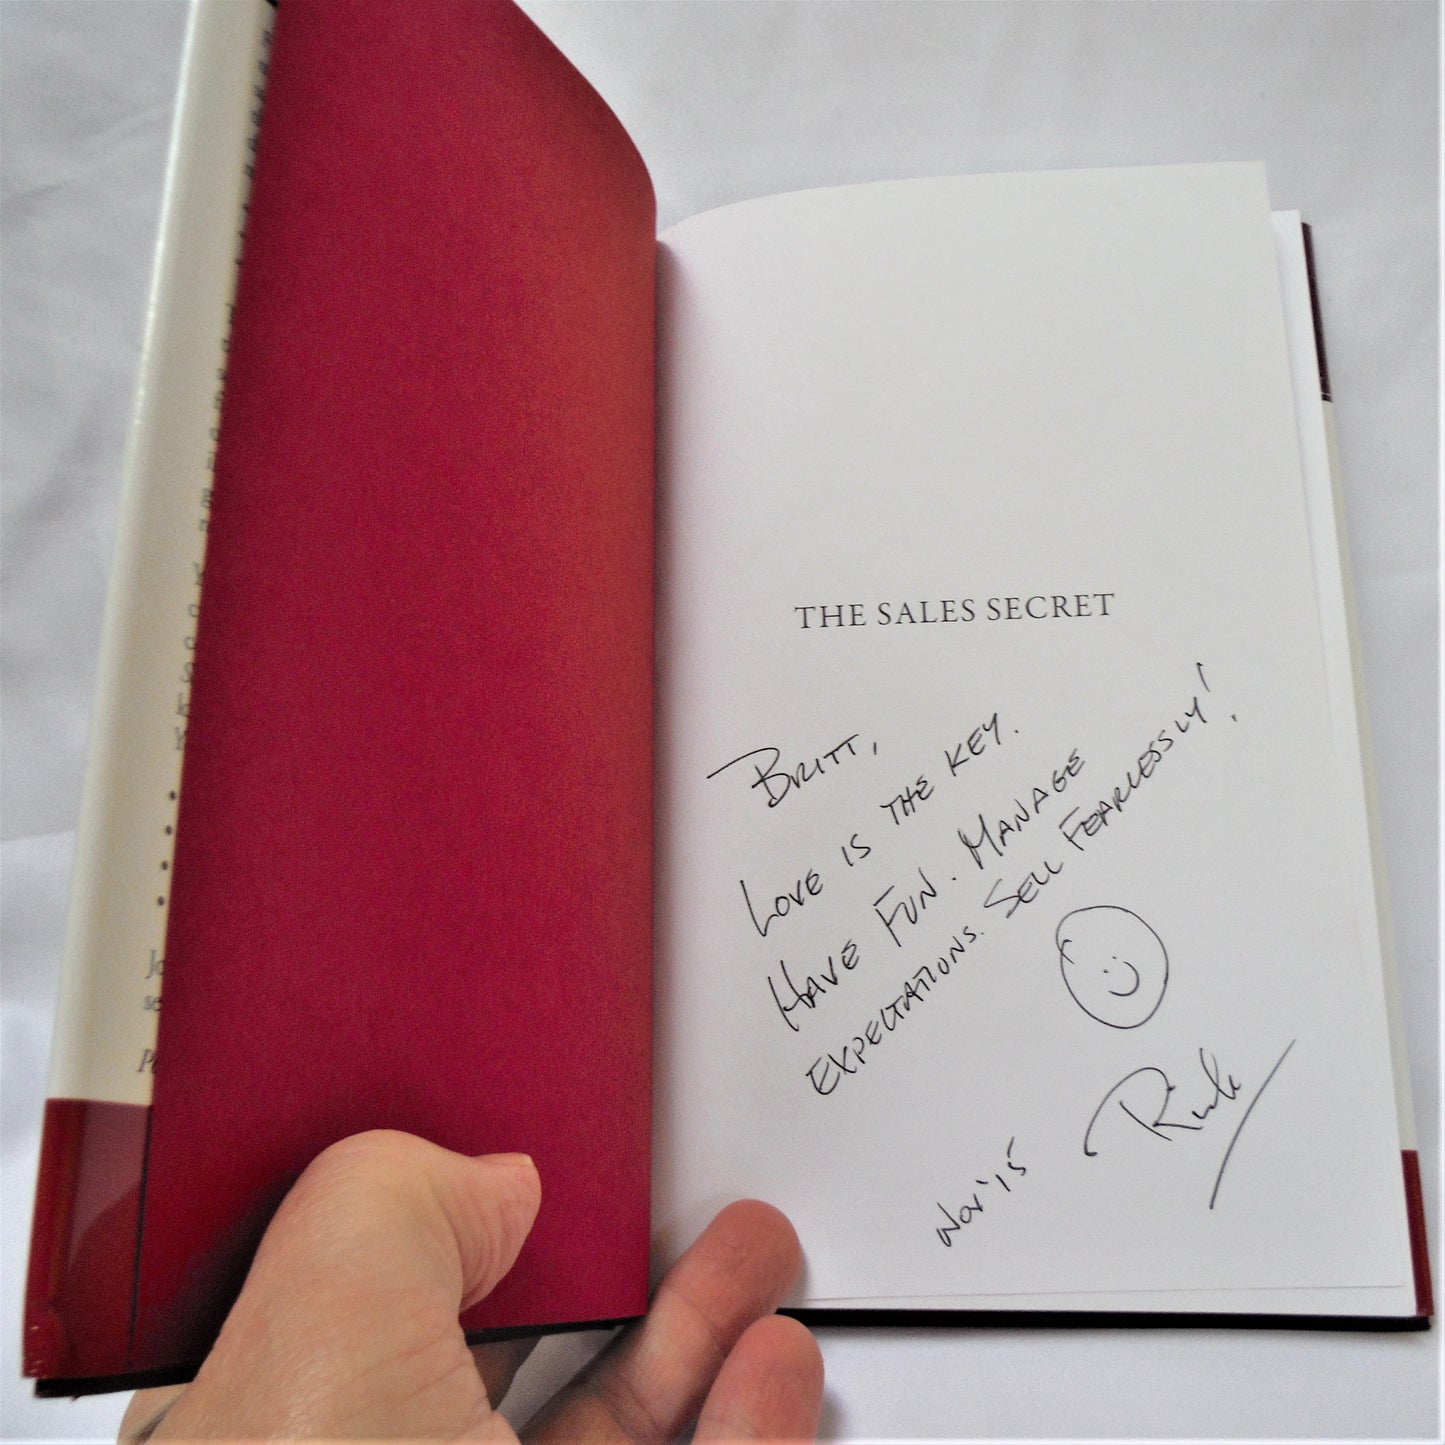 THE SALES SECRET
BRITT,
LOVE IS THE KEY.
HAVE FUN. MANAGE
EXPECTATIONS. SELL FEARLESSLY!
Rick
NOV'15